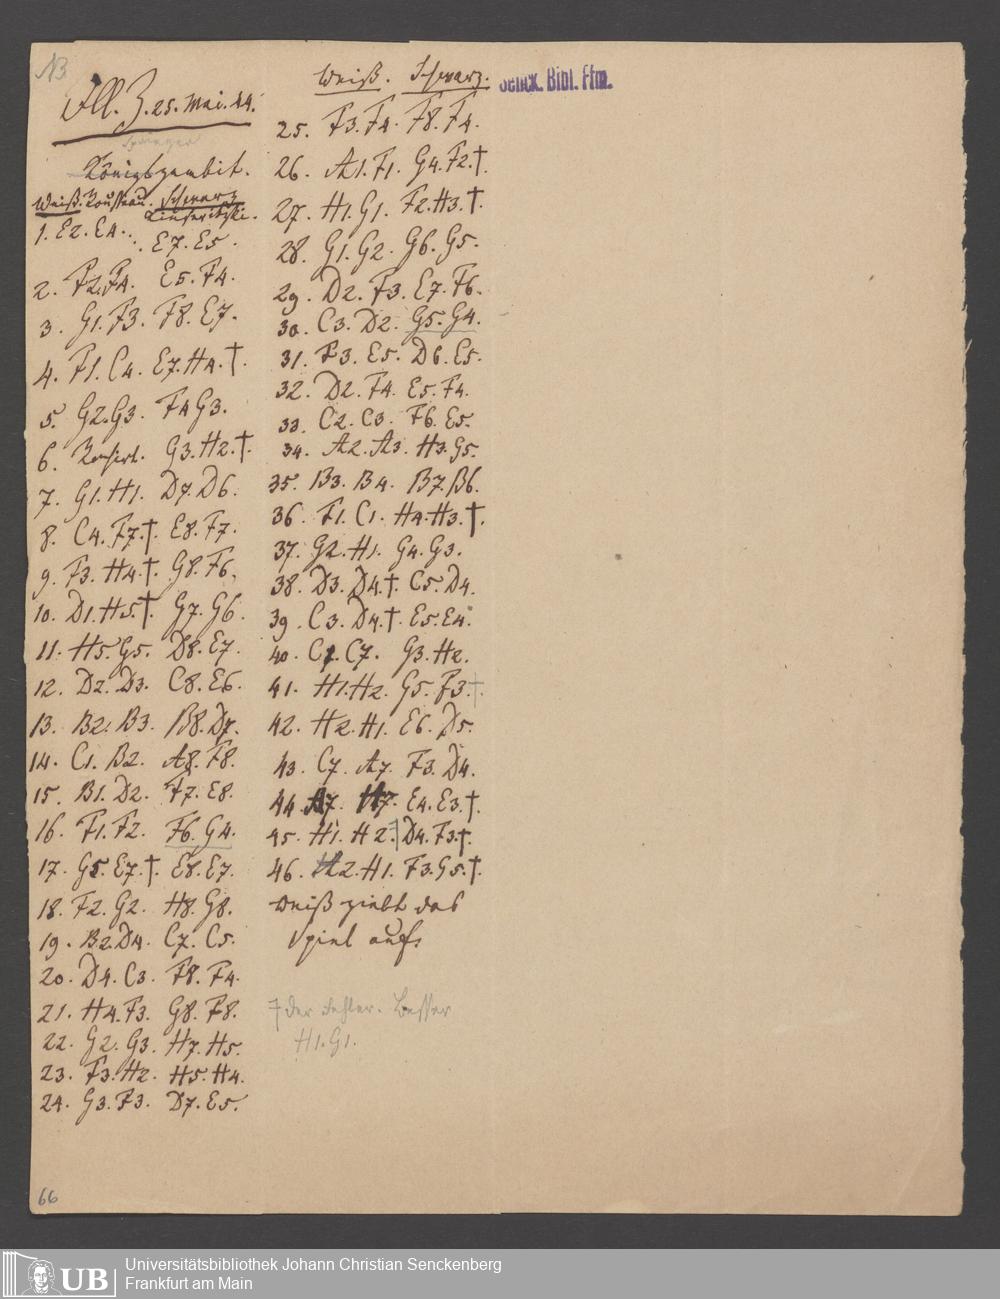 NB
Ill. Z. 25. Mai. 44.
Springer
Königsgambit.
Weiß. Rousseau. Schwarz
Kieseritzki.
1. E2. E4. E7. E5.
2. F2. F4. E5. F4.
3. G1. F3. F8. E7.
4. F1. C4. E7. H4. †.
5. G2. G3. F4 G3.
6. Rochirt. G3. H2. †.
7. G1. H1. D7. D6.
8. C4. F7. †. E8. F7.
9. F3. H4. †. G8. F6.
10. D1. H5 †. G7. G6.
11. H5. G5. D8. E7.
12. D2. D3. C8. E6.
13. B2. B3. B8. D7.
14. C1. B2. A8. F8.
15. B1. D2. F7. E8.
16. F1. F2. F6. G4.
17. G5. E7. †. E8. E7.
18. F2. G2. H8. G8.
19. B2. D4. C7. C5.
20. D4. C3. F8. F4.
21. H4. F3. G8. F8.
22. G2. G3. H7. H5.
23. F3. H2. H5. H4.
24. G3. F3. D7. E5.
66
Weiß. Schwarz.
25. F3. F4. F8. F4.
26. A1. F1. G4. F2. †.
27. H1. G1. F2. H3. †.
28. G1. G2. G6. G5.
29. D2. F3. E7. F6.
30. C3. D2. G5. G4.
31. F3. E5. D6. E5.
32. D2. F4. E5. F4.
33. C2. C3. F6. E5.
34. A2. A3. H3. G5.
35. B3. B4. B7. B6.
36. F1. C1. H4. H3. †.
37. G2. H1. G4. G3.
38. D3. D4. †. C5. D4.
39. C3. D4. † E5. E4.
40. C1. C7. G3. H2.
41. H1. H2. G5. F3. †.
42. H2. H1. E6. D5.
43. C7. A7. F3. D4.
44. A7. H7. E4. E3. †.
45. H1. H2. D4. F3. †.
46. H2. H1. F3. G5. †.
Weiß giebt das
Spiel auf.
7 der Fehler. Besser
H1. G1.
Senck. Bibl. Ffm.
UB
Universitätsbibliothek Johann Christian Senckenberg
Frankfurt am Main